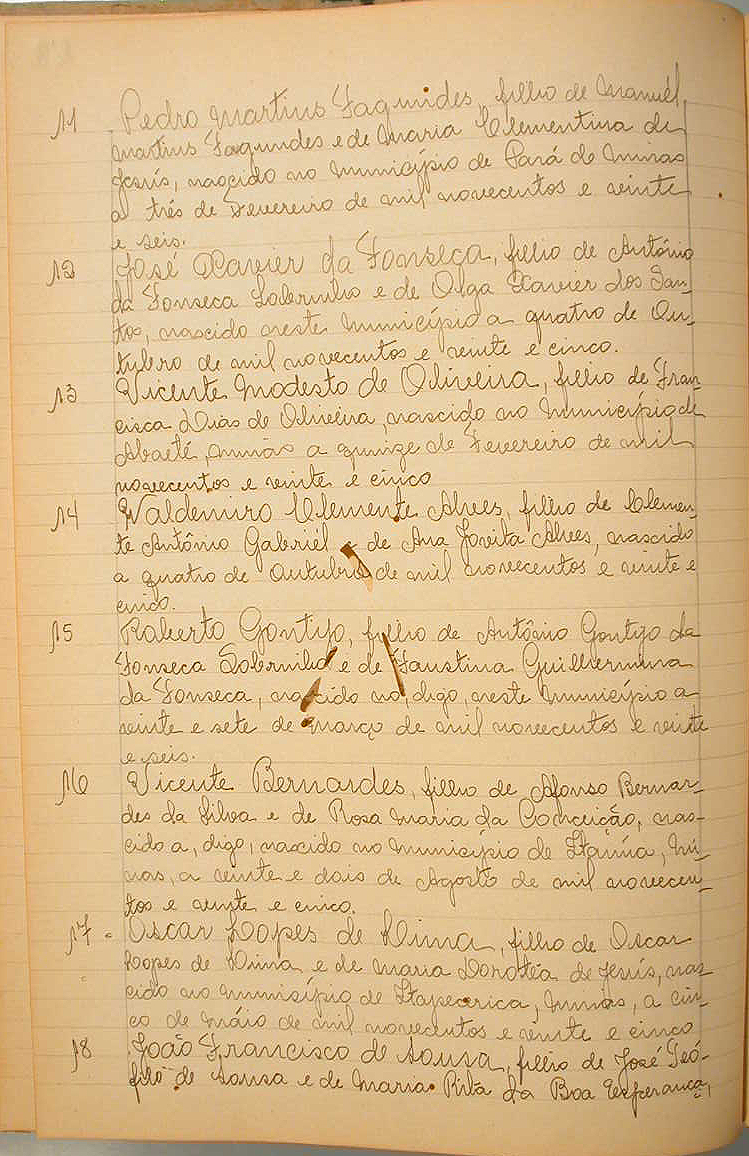 11 Pedro Martins Fagundes, filho de Manuél
Martins Fagundes e de Maria Clementina de
Jesús, nascido no Município de Pará de Minas
a três de Fevereiro de mil novecentos e vinte
e seis.
12 José Xavier da Fonseca, filho de Antônio
da Fonseca Sobrinho e de Olga Xavier dos San-
tos, nascido neste Município a quatro de Ou-
tubro de mil novecentos e vinte e cinco.
13 Vicente Modesto de Oliveira, filho de Fran
cisca Dias de Oliveira, nascido no Município de
Abaeté, Minas a quinze de Fevereiro de mil
novecentos e vinte e cinco
14 Valdemiro Clemente Alves, filho de Clemen-
te Antônio Gabriel e de Ana Jovita Alves, nascido
a quatro de Outubro de mil novecentos e vinte e
cinco.
15 Roberto Gontijo, filho de Antônio Gontijo da
Fonseca Sobrinho e de Faustina Guilhermina
da Fonseca, nascido no, digo, neste Município a
vinte e sete de março de mil novecentos e vinte
e seis.
16 Vicente Bernardes, filho de Afonso Bernar-
des da Silva e de Rosa Maria da Conceição, nas-
cido a, digo, nascido no Município de Itaúna, Mi-
nas, a vinte e dois de Agosto de mil novecen-
tos e vinte e cinco.
17 - Oscar Lopes de Lima, filho de Oscar
Lopes de Lima e de Maria Dorotéa de Jesús, nas
cido no Município de Itapecerica, Minas, a cin-
co de Máio de mil novecentos e vinte e cinco
18 João Francisco de Sousa, filho de José Teó-
filo de Sousa e de Maria Rita da Boa Esperança,